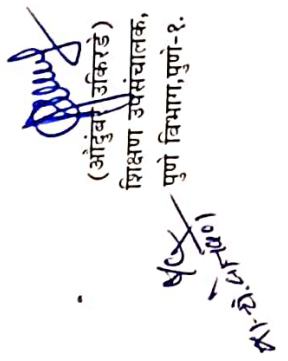 (औदुंबर उकिरडे)
शिक्षण उपसंचालक,
पुणे विभाग,पुणे-१.